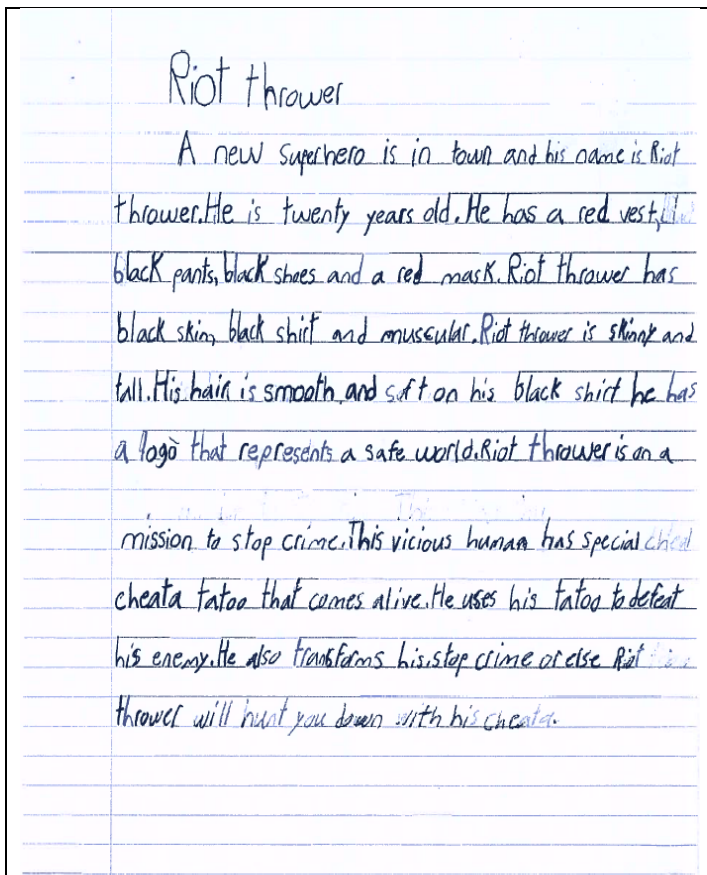 Riot thrower
A new superhero is in town and his name is Riot
thrower. He is twenty years old. He has a red vest,
black pants, black shoes and a red mask. Riot thrower has
black skin, black shirt and muscular. Riot thrower is skinny and
tall. His hair is smooth and soft on his black shirt he has
a logo that represents a safe world. Riot thrower is on a
mission to stop crime. This vicious human has special
cheata tatoo that comes alive. He uses his tatoo to defeat
his enemy. He also transfoms his. stop crime or else Riot
thrower will hunt you down with his cheata.